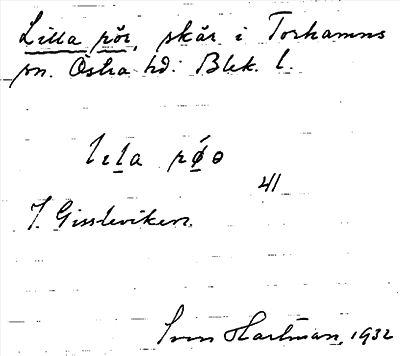 Lilla pör, skär i Torhamns
sn. Östra hd: Blek. l.
lɩla pǿɵ
41
I Gissleviken.
Sven Hartman, 1932